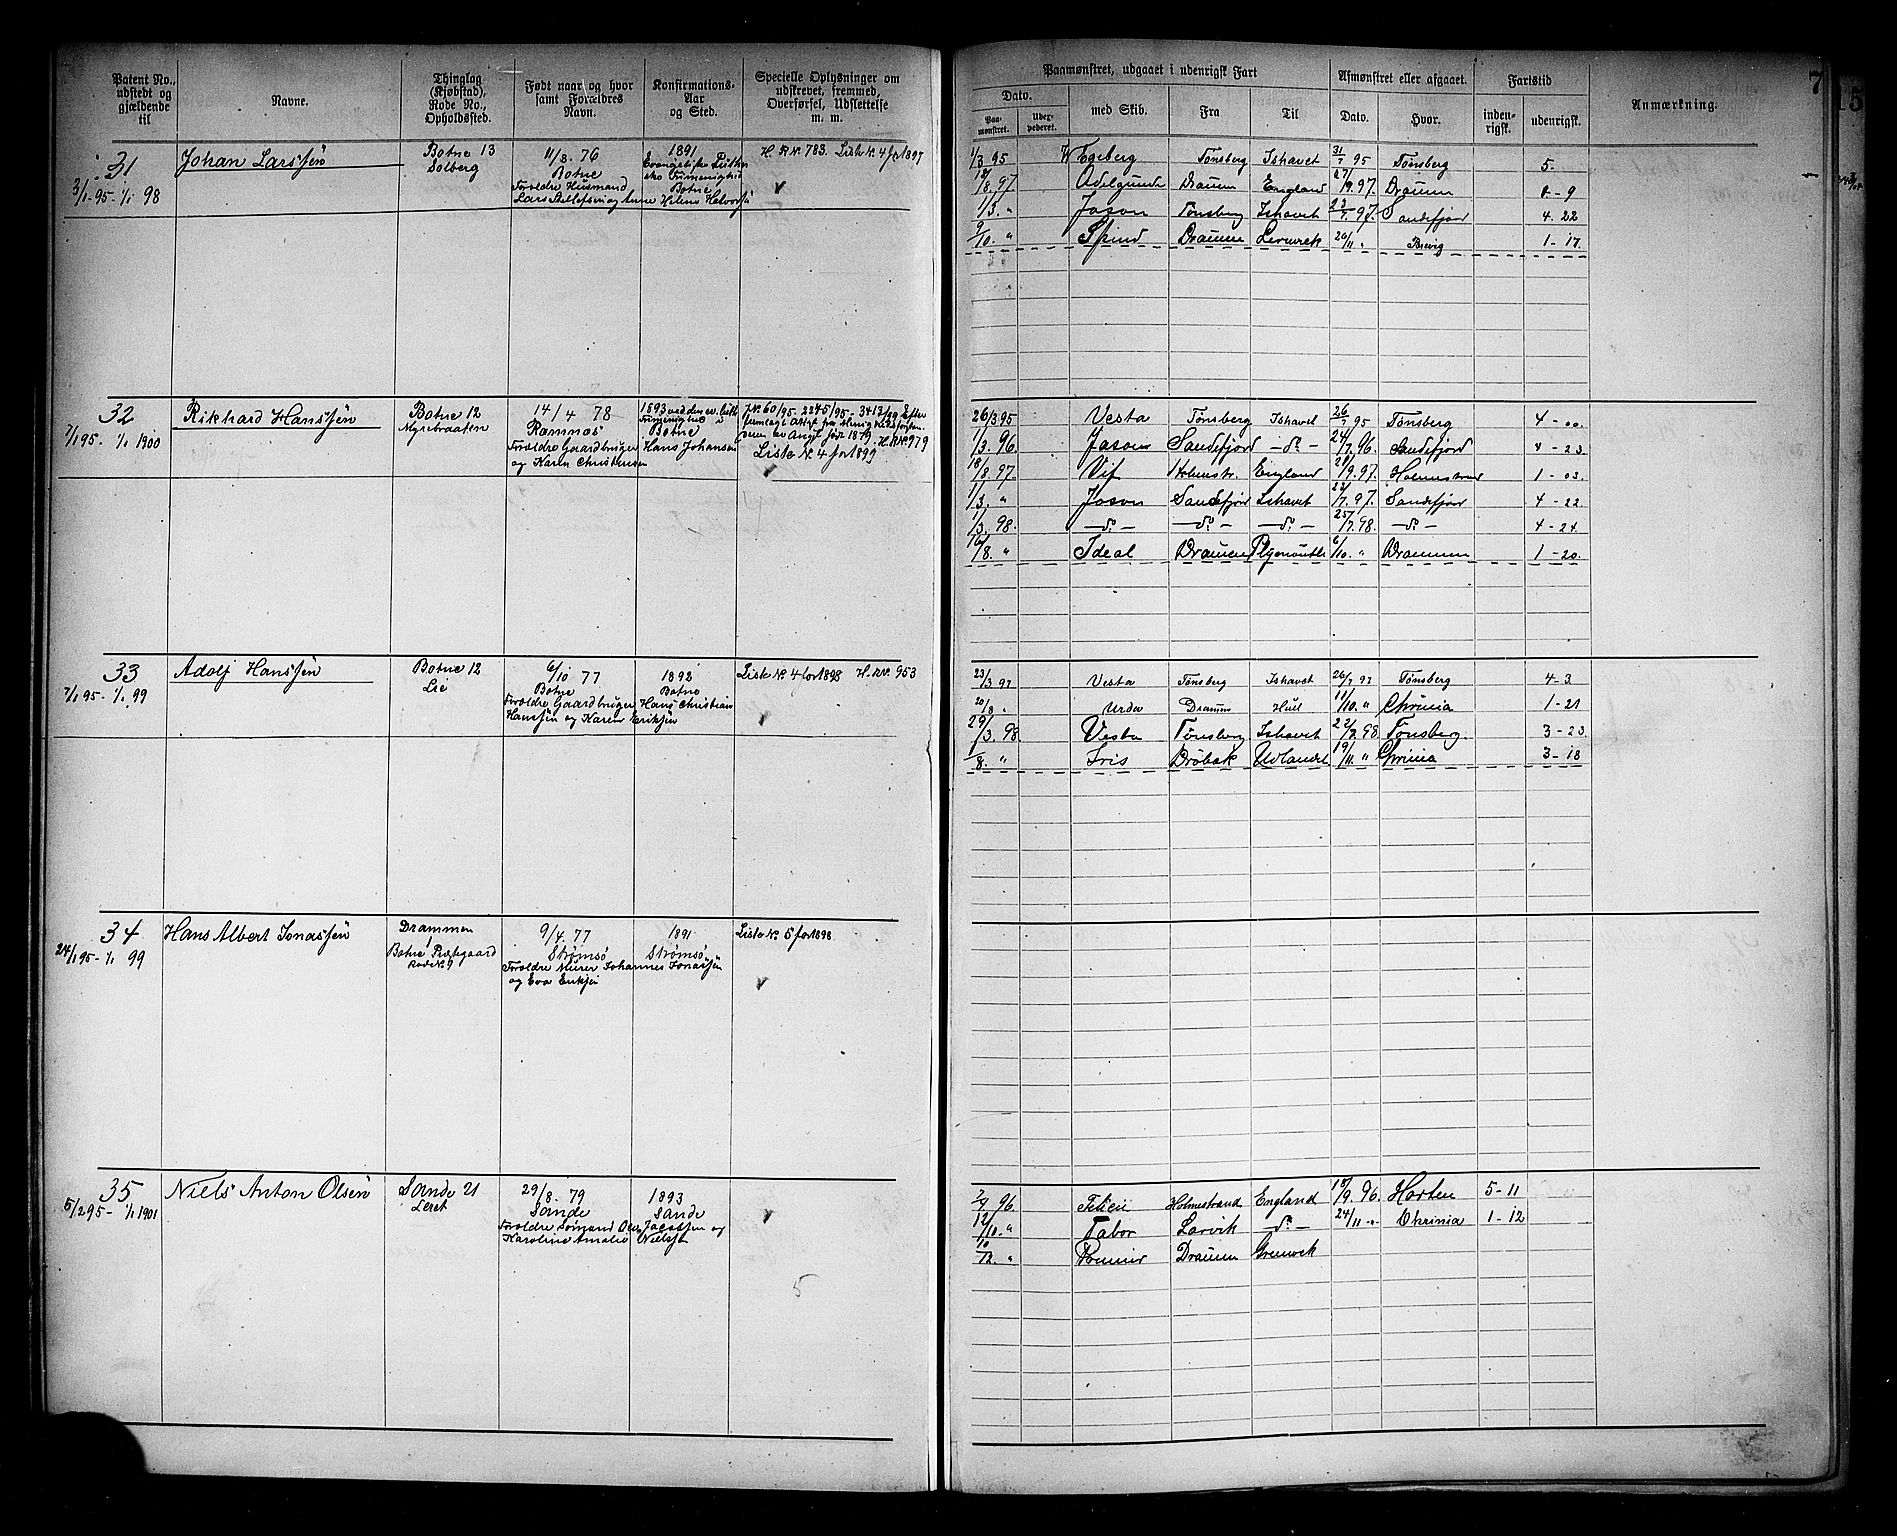 Patent No., udstedt og gjældende til
Navne.
Thinglag (Kjøbstad), Rode No., Opholdssted.
Født naar og hvor samt Forældres Navn.
Konfirmations-Aar og Sted.
Specielle Oplysninger om udskrevet, fremmed, Overførsel, Udslettelse m. m.
31
3/1 95 - 1/1 98
Johan Larssen
Botne 13
Solberg
11/3. 76
Botne
Forældre Husmand
Lars Anne Helene
1891
Evangelisk
Botne
H. R. Nr. 783. Liste Nr. 4 for 1897
32
7/1 95 - 1/1 1900
Rikhard Hanssen
Botne 12
Myrebraaten
14/4 78
Ramnes
Forældre Gaardbruger Hans Johansen
og Karen Christensen
1893 ved den ev. luth.
Frimenighed i
Botne
J. Nr. 60/95 - 2245/95 - 3413/99 Efter
fremlagt Attest fra
1879. H. R. Nr. 979
Liste Nr. 4 for 1899
33
7/1 95 - 1/1 99
Adolf Hanssen
Botne 12
Lie
6/10 77
Botne
Forældre Gaardbruger Hans Christian
Hanssen og Karen Eriksen
1892
Botne
Liste Nr. 4 for 1898 H. R. Nr. 953
34
24/1 95 - 1/1 99
Hans Albert Jonassen
Drammen
1
Botne Præstegaard
Rode Nr. 9
9/4. 77
Strømsø
Forældre Murer Johannes Jonassen
og Eva Eriksen
1891
Strømsø
Liste Nr. 5 for 1898
35
5/2 95 - 1/1 1901
Niels Anton Olsen
Sande 21
Leret
29/8. 79
Sande
Forældre Sømand Ole Jacobsen og
Karoline Amalie Nielsdt
1893
Sande
5
7
15
Paamønstret, udgaaet i udenrigsk Fart
Afmønstret eller afgaaet.
Fartstid
Anmærkning.
Dato.
Paa-mønstret.
Uder-pederet.
med Skib.
Fra
Til
Dato.
Hvor.
inden-rigsk.
udenrigsk.
1/3 95 Egeberg Tønsberg Ishavet 31/7 95 Tønsberg 5.
/8. 97. Adelgunde Dramen England 27/9. 97. Dramen 1 - 9
1/3. " Jason Tønsberg Ishavet 23/7. 97. Sandefjord 4 - 22
9/10. " Spind Dramen Lerwick 26/11 " Brevig 1 - 17.
26/3 95 Vesta Tønsberg Ishavet 26/7 95 Tønsberg 4 - 00.
1/3. 96. Jason Sandefjord - do - 24/7. 96. Sandefjord 4 - 23
18/8. 97. Vif Holmstr. England 21/9. 97. Holmestrand 1 - 03.
1/3. " Jason Sandefjord Ishavet 22/7. 97. Sandefjord 4 - 22.
1/3. 98. - do - - do - - do - 25/7. 98. - do - 4 - 24.
16/8. " Ideal Dramen Plymouth 6/10. " Drammen 1 - 20.
23/3 97 Vesta Tønsberg Ishavet 26/7 97 Tønsberg 4 - 3
20/8 " Urda Dramm Hull 11/10. " Chrinia 1 - 21
29/3. 98. Vesta Tønsberg Ishavet 22/7. 98. Tønsberg. 3 - 23.
1/8. " Iris Drøbak Udlandet 19/11. " Chrinia 3 - 18
96. Felicie Holmestrand England 18/9. 96. Horten 5 - 11
12/10. " Tabor Larvik - do - 24/11 " Chrinia 1 - 12
10/12. " Dramen